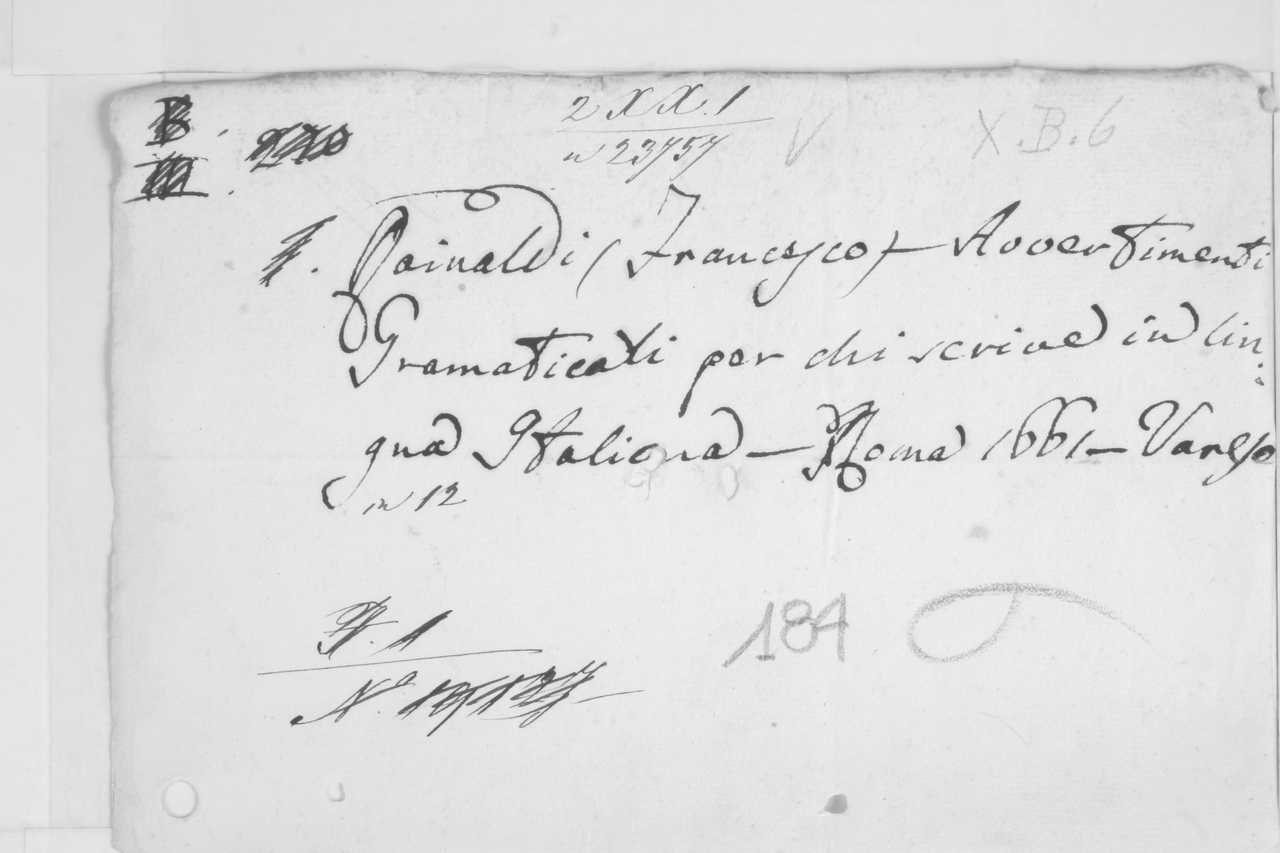 2 XX. 1
n 23757
V
X.B.6
Rainaldi (Francesco) — Avvertimenti
Gramaticali per chi scrive in lin:
gua Italiana — Roma 1661 — Varese
in 12
184
N.°